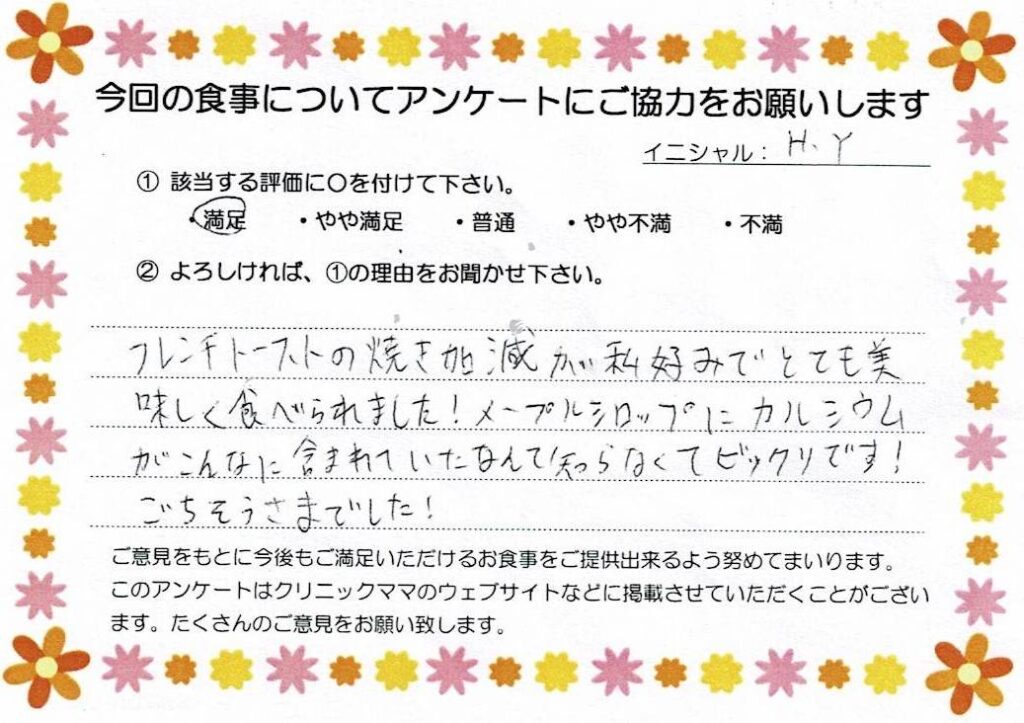 今回の食事についてアンケートにご協力をお願いします
イニシャル： H、Y
① 該当する評価に〇を付けて下さい。
・満足 ・やや満足 ・普通 ・やや不満 ・不満
② よろしければ、①の理由をお聞かせ下さい。
フレンチトーストの焼き加減が私好みでとても美
味しく食べられました！メープルシロップにカルシウム
がこんなに含まれていたなんて知らなくてビックリです！
ごちそうさまでした！
ご意見をもとに今後もご満足いただけるお食事をご提供出来るよう努めてまいります。
このアンケートはクリニックママのウェブサイトなどに掲載させていただくことがござい
ます。たくさんのご意見をお願い致します。